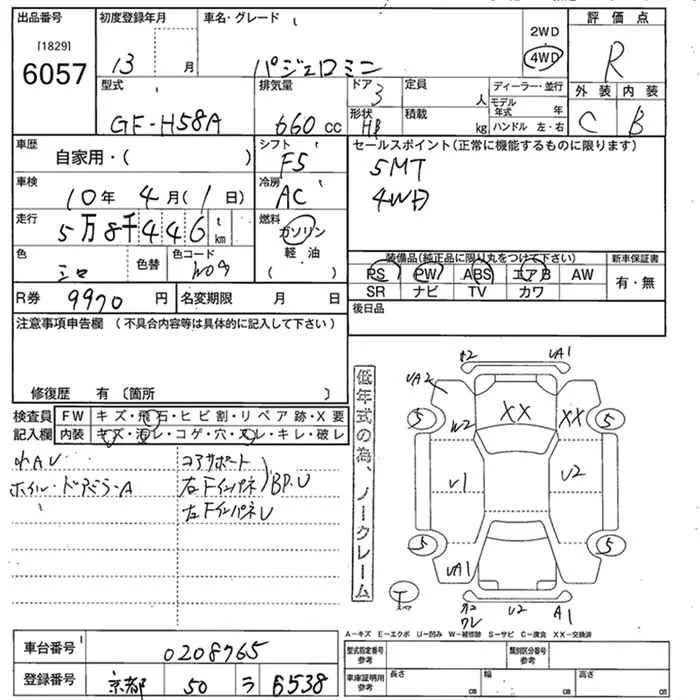 出品番号 初度登録年月 車名・グレード 2WD 評価点
[1829] 4WD
6057 13 月 パジェロミニ R
型式 排気量 ドア 3 定員 人 ディーラー・並行 外装 内装
モデル年式 年
GF-H58A 660 cc 形状 HB 積載 kg ハンドル 左・右 C B
車歴 シフト セールスポイント(正常に機能するものに限ります)
自家用・( ) F5 5MT
車検 冷房 4WD
10年 4月( 1日) AC
走行 燃料
5万8千446 t km ガソリン
軽油
( )
色 色替 色コード 装備品(純正品に限り丸をつけて下さい) 新車保証書
シロ W09 PS PW ABS エアB AW 有・無
R券 9970 円 名変期限 月 日 SR ナビ TV カワ
注意事項申告欄(不具合内容等は具体的に記入して下さい) 後日品
修復歴 有〔箇所 〕
検査員 FW キズ・飛石・ヒビ割・リペア跡・X要
記入欄 内装 キズ・汚レ・コゲ・穴・スレ・キレ・破レ
コアサポート
ホイル・ドアミラーA 右Fインパネ BP.U
左FインパネU
低年式の為、ノークレーム
A2 UA1
UA2 XX XX
5 W2 5
U1 U2
5 UA1 5
T スペア
U2 A1
A-キズ E-エクボ U-凹み W-補修跡 S-サビ C-腐食 XX-交換済
車台番号 0208765 型式指定番号 参考 類別区分番号 参考
登録番号 京都 50 ラ 6538 車庫証明用 参考 長さ cm 幅 cm 高さ cm